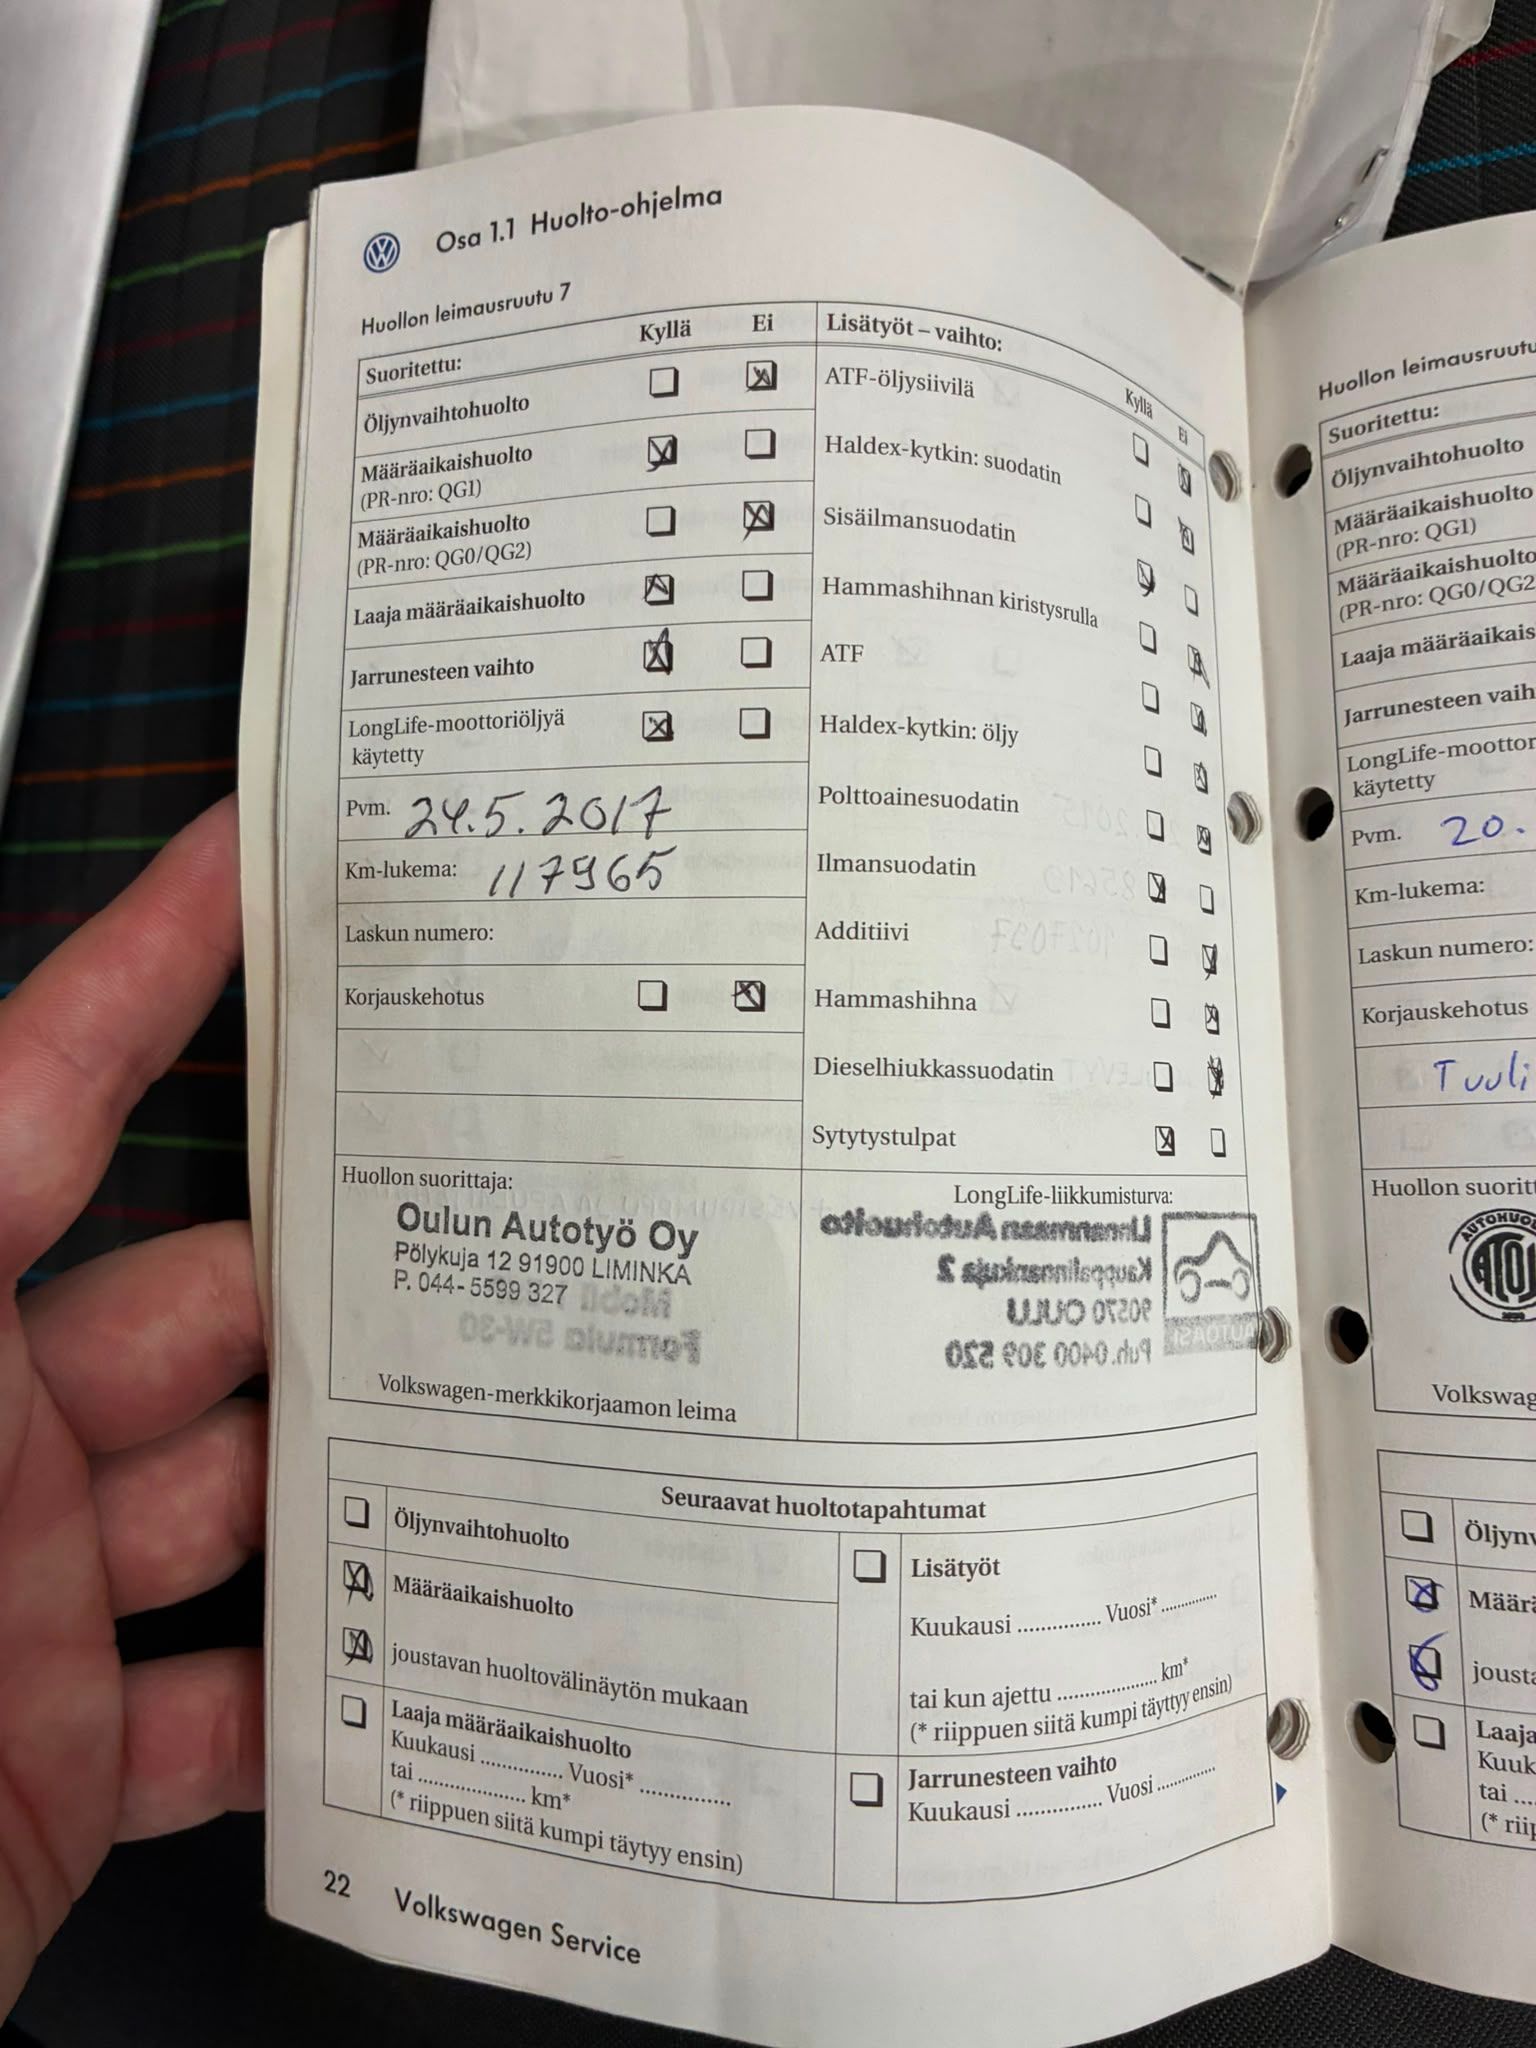 Osa 1.1 Huolto-ohjelma
Huollon leimausruutu 7
Suoritettu: Kyllä Ei
Öljynvaihtohuolto
Määräaikaishuolto
(PR-nro: QG1)
Määräaikaishuolto
(PR-nro: QG0/QG2)
Laaja määräaikaishuolto
Jarrunesteen vaihto
LongLife-moottoriöljyä
käytetty
Pvm. 24.5.2017
Km-lukema: 117965
Laskun numero:
Korjauskehotus
Lisätyöt – vaihto:
Kyllä Ei
ATF-öljysiivilä
Haldex-kytkin: suodatin
Sisäilmansuodatin
Hammashihnan kiristysrulla
ATF
Haldex-kytkin: öljy
Polttoainesuodatin
Ilmansuodatin
Additiivi
Hammashihna
Dieselhiukkassuodatin
Sytytystulpat
Huollon suorittaja:
Oulun Autotyö Oy
Pölykuja 12 91900 LIMINKA
P. 044-5599 327
Volkswagen-merkkikorjaamon leima
LongLife-liikkumisturva:
Linnanmaan Autohuolto
Kauppalinnankuja 2
90570 OULU
Puh. 0400 309 520
Seuraavat huoltotapahtumat
Öljynvaihtohuolto
Määräaikaishuolto
joustavan huoltovälinäytön mukaan
Laaja määräaikaishuolto
Kuukausi .............. Vuosi* ..............
tai .................. km*
(* riippuen siitä kumpi täytyy ensin)
Lisätyöt
Kuukausi .............. Vuosi* ..............
tai kun ajettu .................... km*
(* riippuen siitä kumpi täyttyy ensin)
Jarrunesteen vaihto
Kuukausi .............. Vuosi ..............
22 Volkswagen Service
Huollon leimausruutu
Suoritettu:
Öljynvaihtohuolto
Määräaikaishuolto
(PR-nro: QG1)
Määräaikaishuolto
(PR-nro: QG0/QG2
Laaja määräaikais
Jarrunesteen vaih
LongLife-moottor
käytetty
Pvm. 20.
Km-lukema:
Laskun numero:
Korjauskehotus
Tuuli
Huollon suoritt
Volkswag
Öljynv
Määrä
jousta
Laaja
Kuuk
tai ....
(* riip